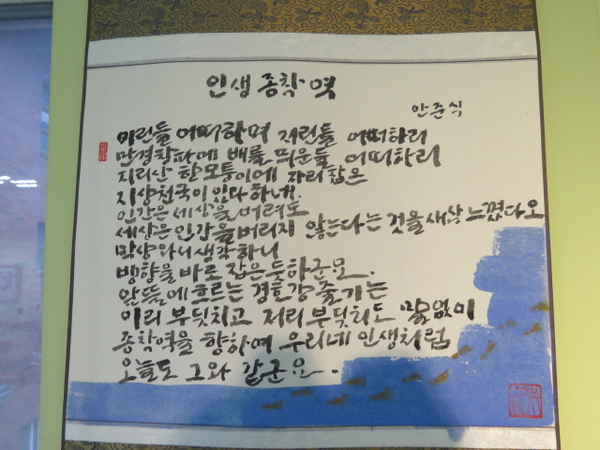 인생 종착역
안준식
이런들 어떠하며 저런들 어떠하리
만경창파에 배를 띄운들 어떠하리
지리산 한모퉁이에 자리잡은
지상천국이 있다 하네.
인간은 세상을 버려도
세상은 인간을 버리지 않는다는 것을 새삭 느꼈다오
막상 와서 생각하니
방향을 바로 잡은듯하군요.
앞뜰에 흐르는 경호강 줄기는
이리 부딪치고 저리 부딪쳐도 말없이
종착역을 향하여 우리네 인생처럼
오늘도 그와 같군요.